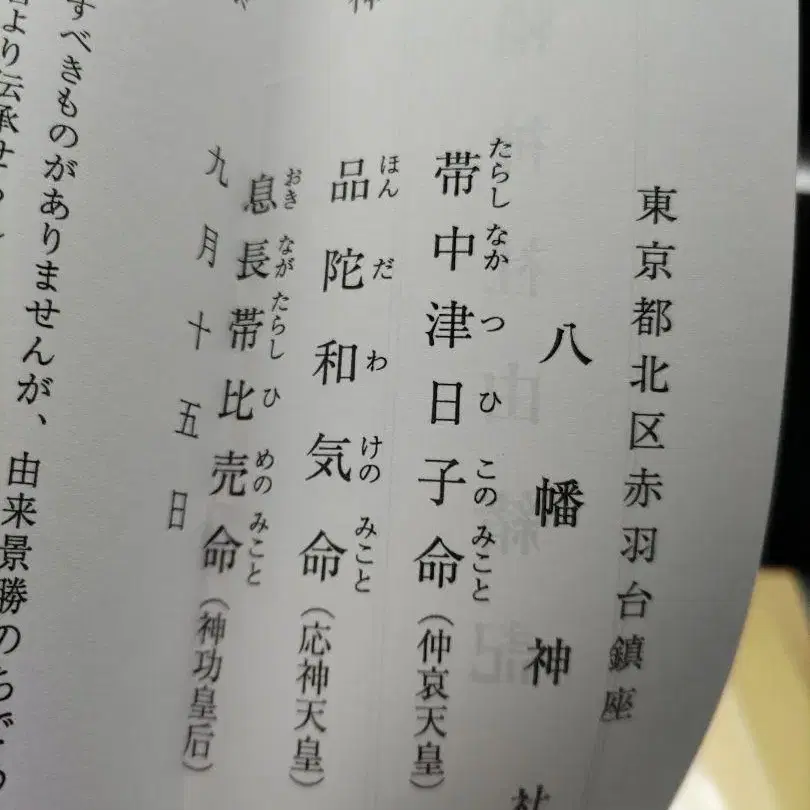 東京都北区赤羽台鎮座
八幡神社
帯中津日子命（仲哀天皇）
たらしなかつひこのみこと
品陀和気命（応神天皇）
ほんだわけのみこと
息長帯比売命（神功皇后）
おきながたらしひめのみこと
九月十五日
すべきものがありませんが、由来景勝のちどり
より伝承せら